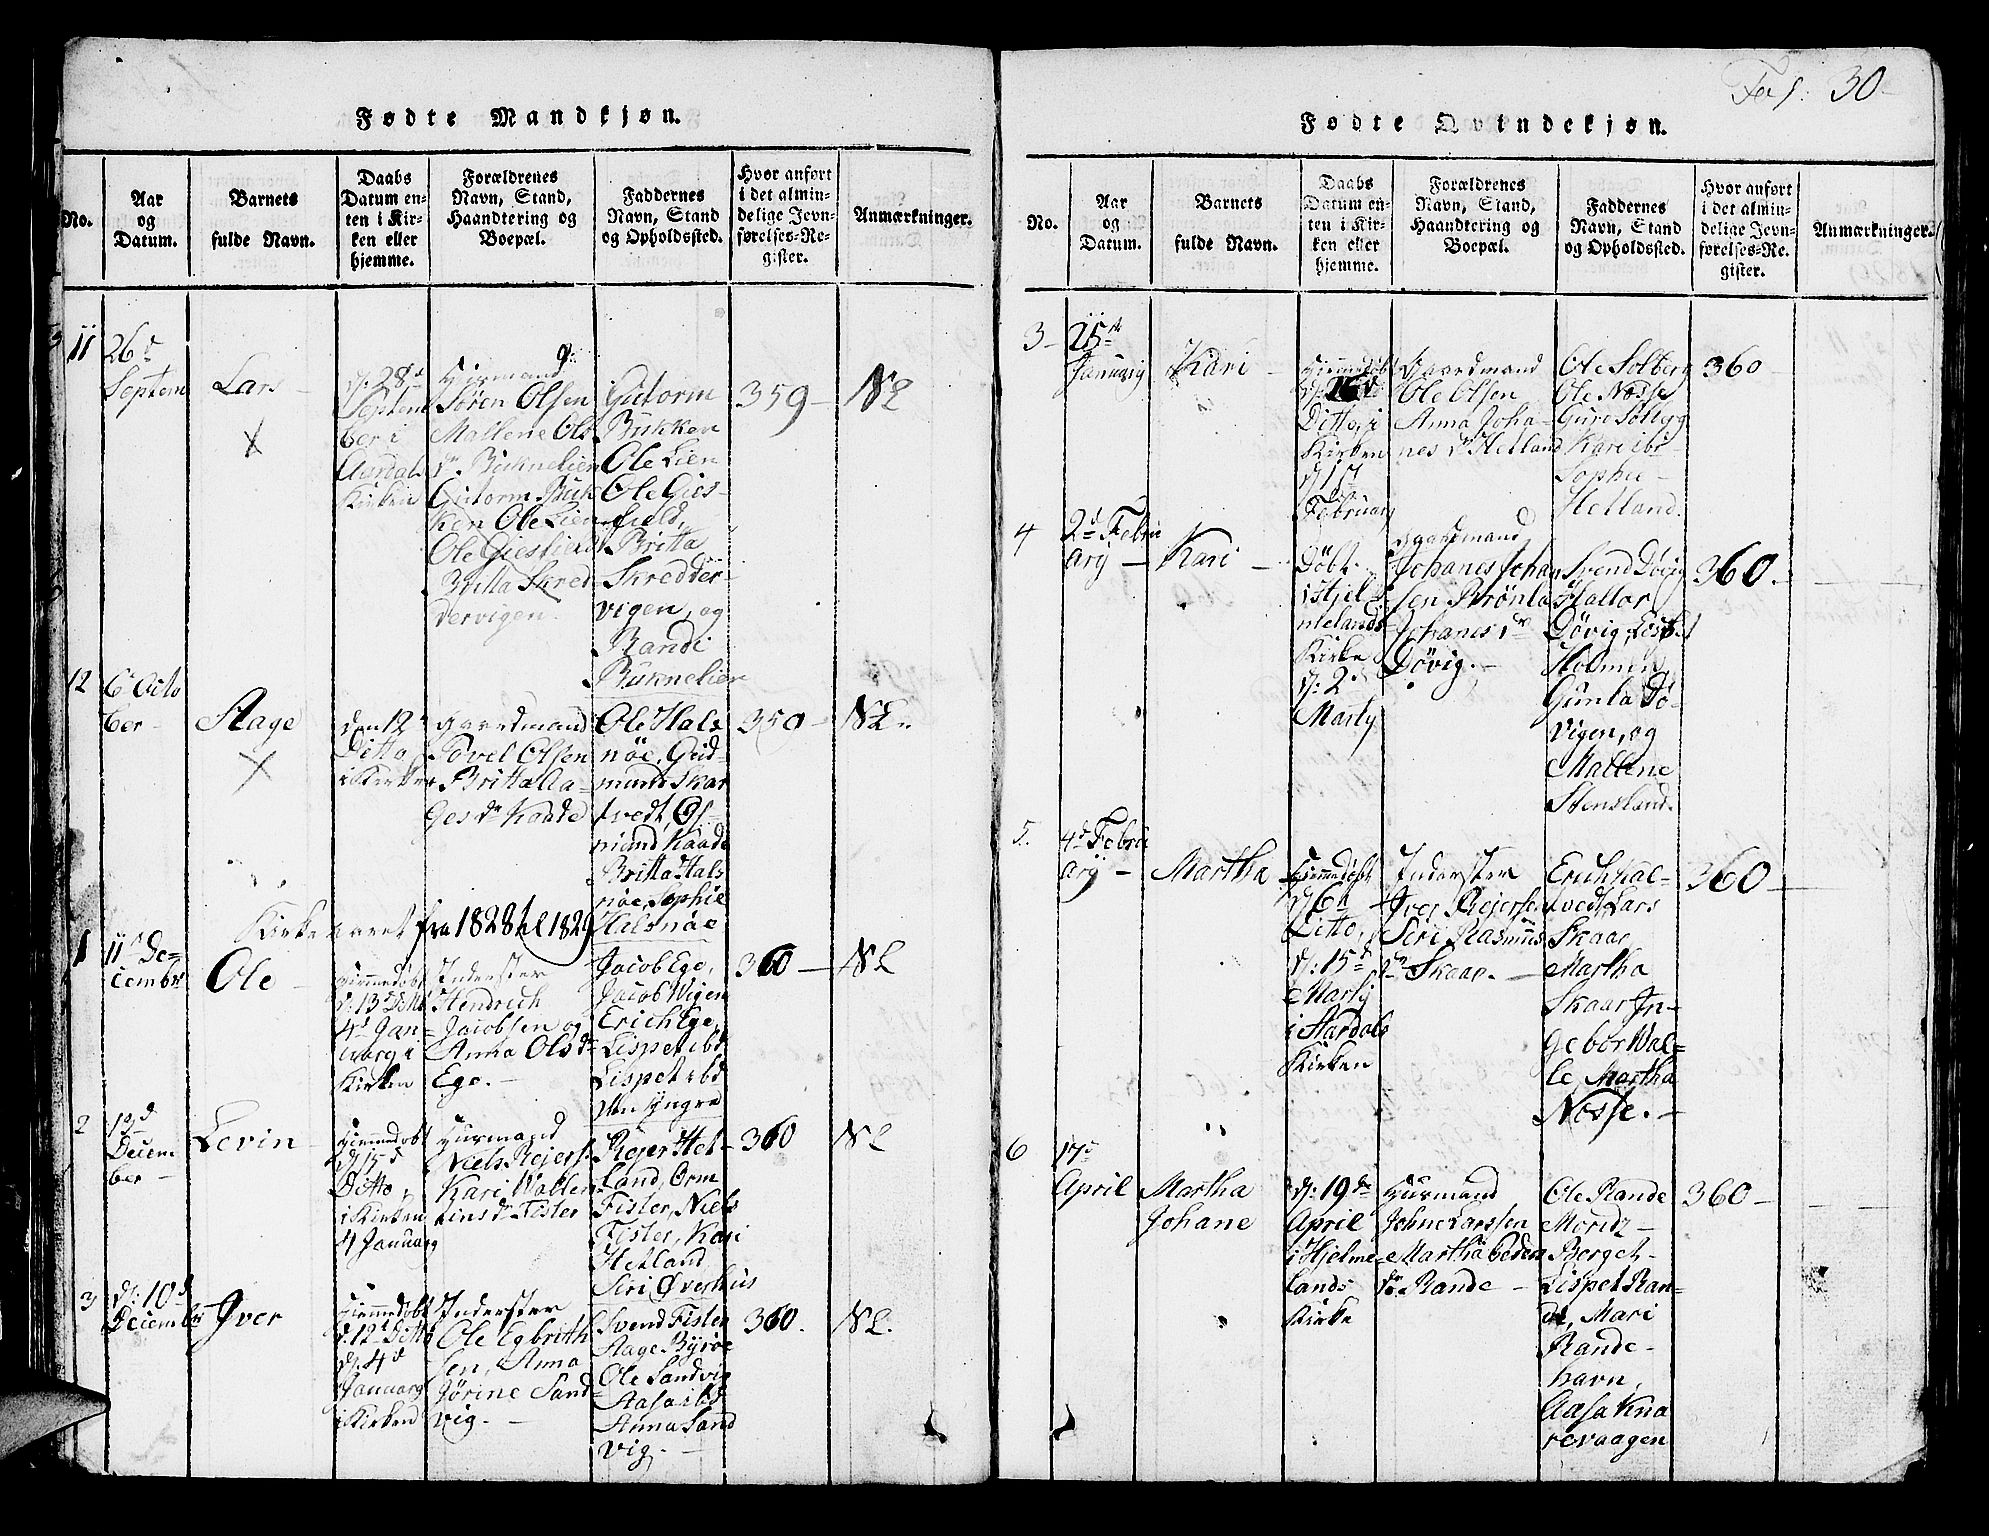 Fødte Mandkjøn.
No.
Aar
og
Datum.
Barnets
fulde Navn.
Daabs
Datum en-
ten i Kir-
ken eller
hjemme.
Forældrenes
Navn, Stand,
Haandtering og
Boepæl.
Faddernes
Navn, Stand
og Opholdssted.
Hvor anført
i det almin-
delige Jevn-
førelses-Re-
gister.
Anmærkninger.
11
26d
Septem
Lars
d: 28d
Septem
ber i
Aardals
Kirken
Huusmand
Søren Olsen
Mallene Ols
dr Buknelien
Gutorm Buk
ken Ole Lien
Ole Giesfield
Britta Skred
dervigen.
Gutorm
Bukken
Ole Lien
Ole Gies-
field,
Britta
Skredder-
vigen, og
Randi
Buknelien
359
12
6d Octo
ber
Aage
den 12
Ditto
i Kirken
Gaardmand
Povel Olsen
Britta Aa-
ges dr Kaade
Ole Hals
nöe, Gud-
mund Skar
tvedt, Os-
mund Kaade
Britta Hals
nöe, Sophie
Halsnöe
350
Kirkeaaret fra 1828 til 1829
1
11d De-
cembr
Ole
Hiemmedøbt
d: 13d Ditto
4d Jan-
uarg i
Kirken
Inderster
Hendrich
Jacobsen og
Anna Ols dr
Ege.
Jacob Ege,
Jacob Wigen
Erich Ege,
Lispet ibd
Lispet ibd
360
2
13d
Decem
ber
Levin
Hiemmedøbt
d: 15d
Ditto,
i Kirken
4 Januarg
Huusmand
Niels Rejers
Kari Wallen
tins dr Fister
Rejer Het-
land, Orm
Fister, Niels
Fister, Kari
Hetland
Siri Øverhus
360
3
d: 10d
Decembr
Iver
Hiemmedøbt
d: 12d Ditto
d: 4d
Januarg
i Kirken
Inderster
Ole Egbrith
sen, Anna
Jörine Sand
vig.
Svend Fister
Aage Byröe
Ole Sandvig
Aasa ibd
Anna Sand
vig.
360.
30
Fødte Qvindekjøn.
No.
Aar
og
Datum.
Barnets
fulde Navn.
Daabs
Datum en-
ten i Kir-
ken eller
hjemme.
Forældrenes
Navn, Stand,
Haandtering og
Boepæl.
Faddernes
Navn, Stand
og Opholdssted.
Hvor anført
i det almin-
delige Jevn-
førelses-Re-
gister.
Anmærkninger.
3
25de
Januarig
Kari
Hiemmedøbt
Ditto, i
Kirken
d: 17
Februarg
Gaardmand
Ole Olsen
Anna Joha-
nes dr Hetland
Ole Solberg
Ole Nosse
Kari ibr
Sophie
Hetland.
360
4
2d Febru
arÿ
Kari
Døbt
i Hjel-
mlands
Kirke
d: 2d
Martÿ
Gaardmand
Johanes Johan
sen Brönla
Johanes dr
Döвig.
Svend Dövig
Hallor
Dövig, Lispet
Holmen
Gunla Dö-
vigen, og
Mallene
Stensland.
360
5.
4d Febru
arÿ
Martha
Hiemmedøbt
d: 6d
Ditto,
d: 15d
Martÿ
i Aardals
Kirken
Inderster
Iver Rejersen
Siri Rasmus
dr Skaar.
Erich Kal-
vedt, Lars
Skaar
Martha
Skaar In-
gebor Wal-
le, Martha
Nosse.
360
6
17d
April
Martha
Johane
d: 19de
April
i Hjelme-
lands
Kirke
Huusmand
Johne Larssen
Martha Peders
dr Rande
Ole Rande
Moritz
Berget
Lispet Ran-
de, Mari
Rande-
havn,
Aasa Kna
revaagen
360